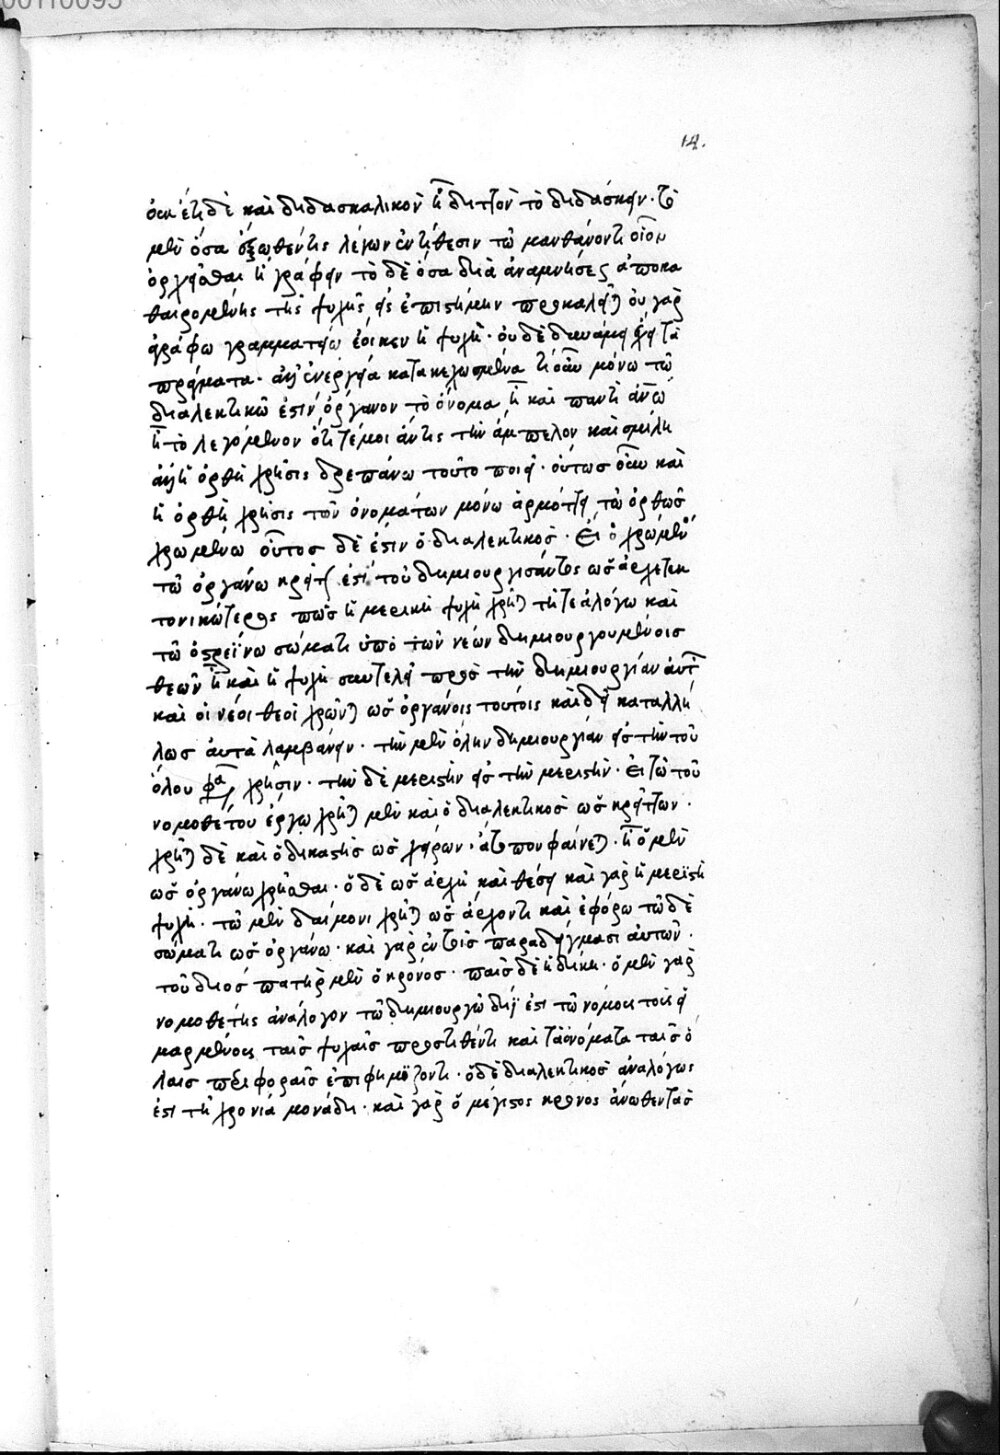 14.
ὅτι ἐστὶ δὲ καὶ διδασκαλικὸν ὅτι διττὸν τὸ διδάσκειν. τὸ
μὲν ὅσα ἔξωθέν τις λέγων ἐντίθεσιν τῷ μανθάνοντι οἷον
ὀρχεῖσθαι ἢ γράφειν τὸ δὲ ὅσα διὰ ἀναμνήσεως ἀποκα
θαιρομένης τῆς ψυχῆς εἰς ἐπιστήμην προκαλεῖται οὐ γὰρ
ἀγράφω γραμματείω ἔοικεν ἡ ψυχή. οὐδὲ δυνάμει ἔχει τὰ
πράγματα. ἀλλ' ἐνεργεία κατακεχωσμένα μόνω τῷ
διαλεκτικῶ ἐστὶν ὄργανον τὸ ὄνομα ὅτι καὶ παντὶ ἀνθρώπω
ὅτι τὸ λεγόμενον ὅτι τέμοι ἄν τις τὴν ἄμπελον καὶ σμίλη
ἀλλ' ἡ ὀρθὴ χρῆσις δρεπάνω τοῦτο ποιεῖ. οὕτως οὖν καὶ
ἡ ὀρθὴ χρῆσις τῶν ὀνομάτων μόνω ἁρμόττει τῷ ὀρθῶς
χρωμένω οὗτος δέ ἐστιν ὁ διαλεκτικός. Εἰ ὁ χρώμενος
τῷ ὀργάνω κρείττων ἐστὶ τοῦ δημιουργήσαντος ὡς ἀρχιτεκ
τονικώτερος πῶς ἡ μερικὴ ψυχὴ χρῆται τῇ τε ἀλόγω καὶ
τῷ ὀστρεΐνω σώματι ὑπὸ τῶν νέων δημιουργουμένοις
θεῶν ὅτι καὶ ἡ ψυχὴ συντελεῖ πρὸς τὴν δημιουργίαν αὐτῶν
καὶ οἱ νέοι θεοὶ χρῶνται ὡς ὀργάνοις τούτοις καὶ δεῖ καταλλή
λως αὐτὰ λαμβάνειν. τὴν μὲν ὅλην δημιουργίαν εἰς τὴν τοῦ
ὅλου χρῆσιν. τὴν δὲ μεριστὴν εἰς τὴν μεριστήν. Εἰ τῷ τοῦ
νομοθέτου ἔργω χρῆται μὲν καὶ ὁ διαλεκτικὸς ὡς κρείττων.
χρῆται δὲ καὶ ὁ δικαστὴς ὡς χείρων. ἄτοπον φαίνεται. ὅτι ὁ μὲν
ὡς ὀργάνω χρῆσθαι. ὁ δὲ ὡς ἀρχῇ καὶ θέσει καὶ γὰρ ἡ μεριστὴ
ψυχή. τῷ μὲν δαίμονι χρῆται ὡς ἄρχοντι καὶ ἐφόρω τῷ δὲ
σώματι ὡς ὀργάνω. καὶ γὰρ ἐν τοῖς παραδείγμασι αὐτῶν.
τοῦ διὸς πατὴρ μὲν ὁ κρόνος. παῖς δὲ ἡ δίκη. ὁ μὲν γὰρ
νομοθέτης ἀνάλογον τῷ δημιουργῷ διΐ ἐστι τῷ νόμους τοὺς εἱ
μαρμένους ταῖς ψυχαῖς προστιθέντι καὶ τὰ ὀνόματα ταῖς ὅ
λαις περιφοραῖς ἐπιφημίζοντι. ὁ δὲ διαλεκτικὸς ἀναλόγως
ἐστὶ τῇ χρονία μονάδι. καὶ γὰρ ὁ μέγιστος κρόνος ἄνωθεν τὰς